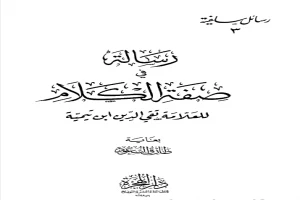 رسائل سلفية
٣
رسالة
في
صفة الكلام
للعلامة تقي الدين ابن تيمية
بعناية
طارق السعود
دار الهجرة